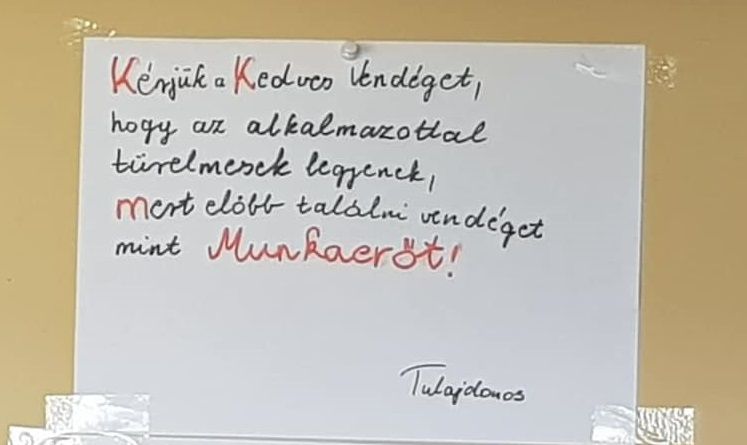 Kérjük a Kedves Vendéget,
hogy az alkalmazottal
türelmesek legyenek,
mert előbb találni vendéget
mint Munkaerőt!
Tulajdonos